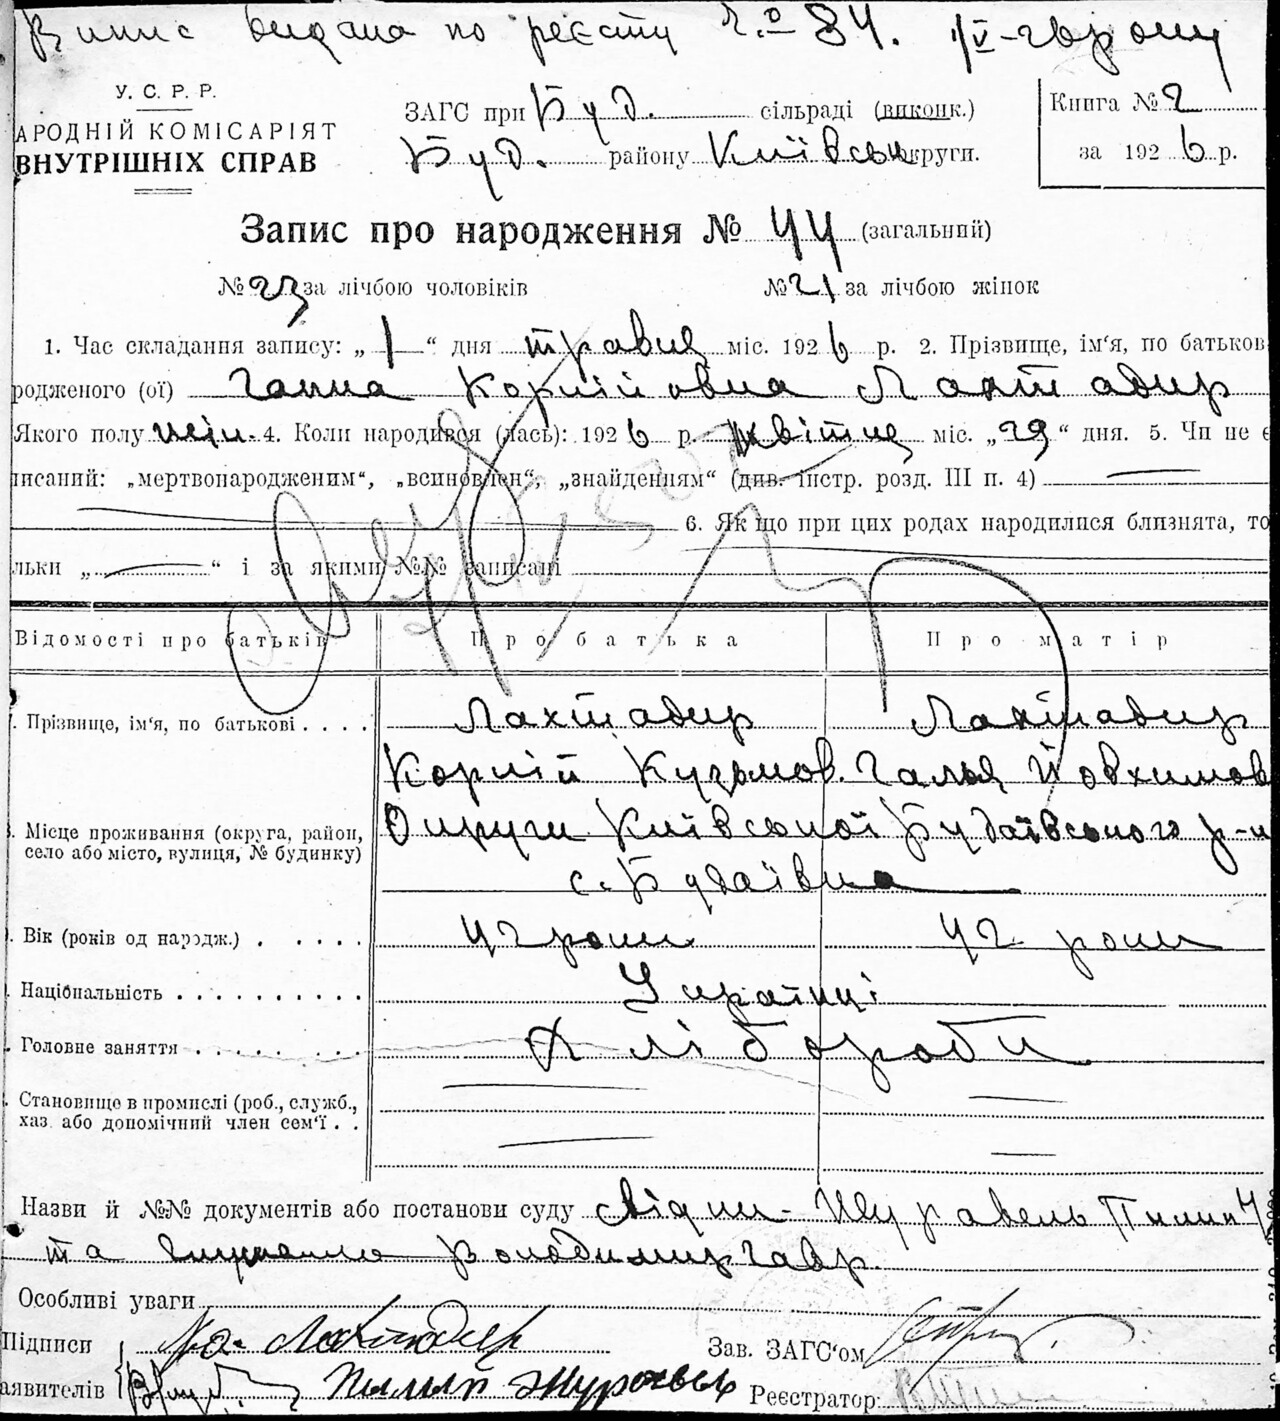 Випис видана по реєстру Ч.о 84.
У. С. Р. Р.
АРОДНІЙ КОМІСАРІЯТ
ВНУТРІШНІХ СПРАВ
ЗАГС при Буд. сільраді (виконк.)
Буд. району Київськ округи.
Книга № 2
за 1926 р.
Запис про народження № 44 (загальний)
№ 23 за лічбою чоловіків № 21 за лічбою жінок
1. Час складання запису: „1“ дня травня міс. 1926 р. 2. Прізвище, ім'я, по батьков
родженого (ої) Ганна Корнійовна Лахтадир
Якого полу жін. 4. Коли народився (лась): 1926 р. квітня міс. „29“ дня. 5. Чи не є
писаний: „мертвонародженим“, „всиновлен“, „знайденням“ (див. інстр. розд. III п. 4)
6. Як що при цих родах народилися близнята, то
льки „ “ і за якими №№ записані
Відомості про батьків Про батька Про матір
Прізвище, ім'я, по батькові . . . . Лахтадир Лахтадир
Корній Кузьмов. Галья Йовхимов
Місце проживання (округа, район, село або місто, вулиця, № будинку) Округи Київської Будаївського р-н
с. Будаївка
Вік (років од народж.) . . . . . 42 роки 42 роки
Національність . . . . . . . . . . Українці
Головне заняття . . . . . . . . Хлібороби
Становище в промислі (роб., служб.,
хаз. або допомічний член сем'ї . .
Назви й №№ документів або постанови суду Свідки - Журавель Пилип
та Володимир Гавр.
Особливі уваги
Підписи Лахтадир Зав. ЗАГС'ом
аявителів Пилип Журавель Реєстратор: